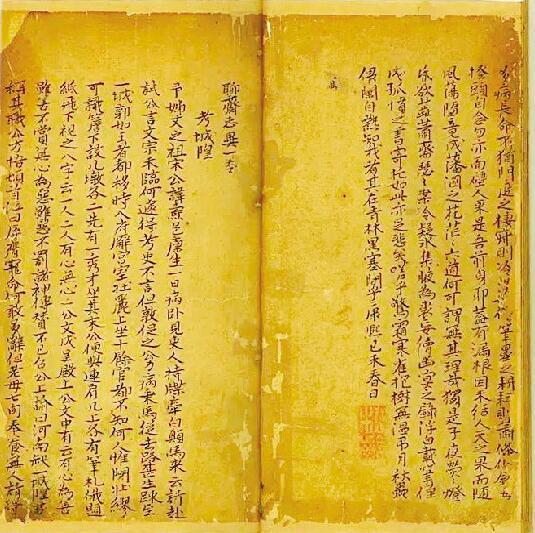 多病長命不猶門庭之悽寂則冷淡如僧筆墨之耕耘則蕭條似鉢每
搔頭自念勿亦面壁人果是吾前身耶蓋有漏根因未結人天之果而隨
風蕩墮竟成藩溷之花茫茫六道何可謂無其理哉獨是子夜熒熒燈
昏欲蕊蕭齋瑟瑟案冷疑冰集腋為裘妄續幽冥之錄浮白載筆僅
成孤憤之書寄托如此亦足悲矣嗟乎驚霜寒雀抱樹無溫弔月秋蟲
偎闌自熱知我者其在青林黑塞間乎康熙己未春日
聊齋志異一卷
考城隍
予姊丈之祖宋公諱燾邑廩生一日病臥見吏人持牒牽白顛馬來云請赴
試公言文宗未臨何遽得考吏不言但敦促之公力病乘馬從去路甚生疎至
一城郭如王者都移時入府廨宮室壯麗上坐十餘官都不知何人惟關壯繆
可識簷下設几墩各二先有一秀才坐其末公便與連肩几上各有筆札俄題
紙飛下視之八字云一人二人有心無心二公文成呈殿上公文中有云有心為善
雖善不賞無心為惡雖惡不罰諸神傳贊不已召公上諭曰河南缺一城隍君
稱其職公方悟頓首泣曰辱膺寵命何敢多辭但老母七旬奉養無人請得